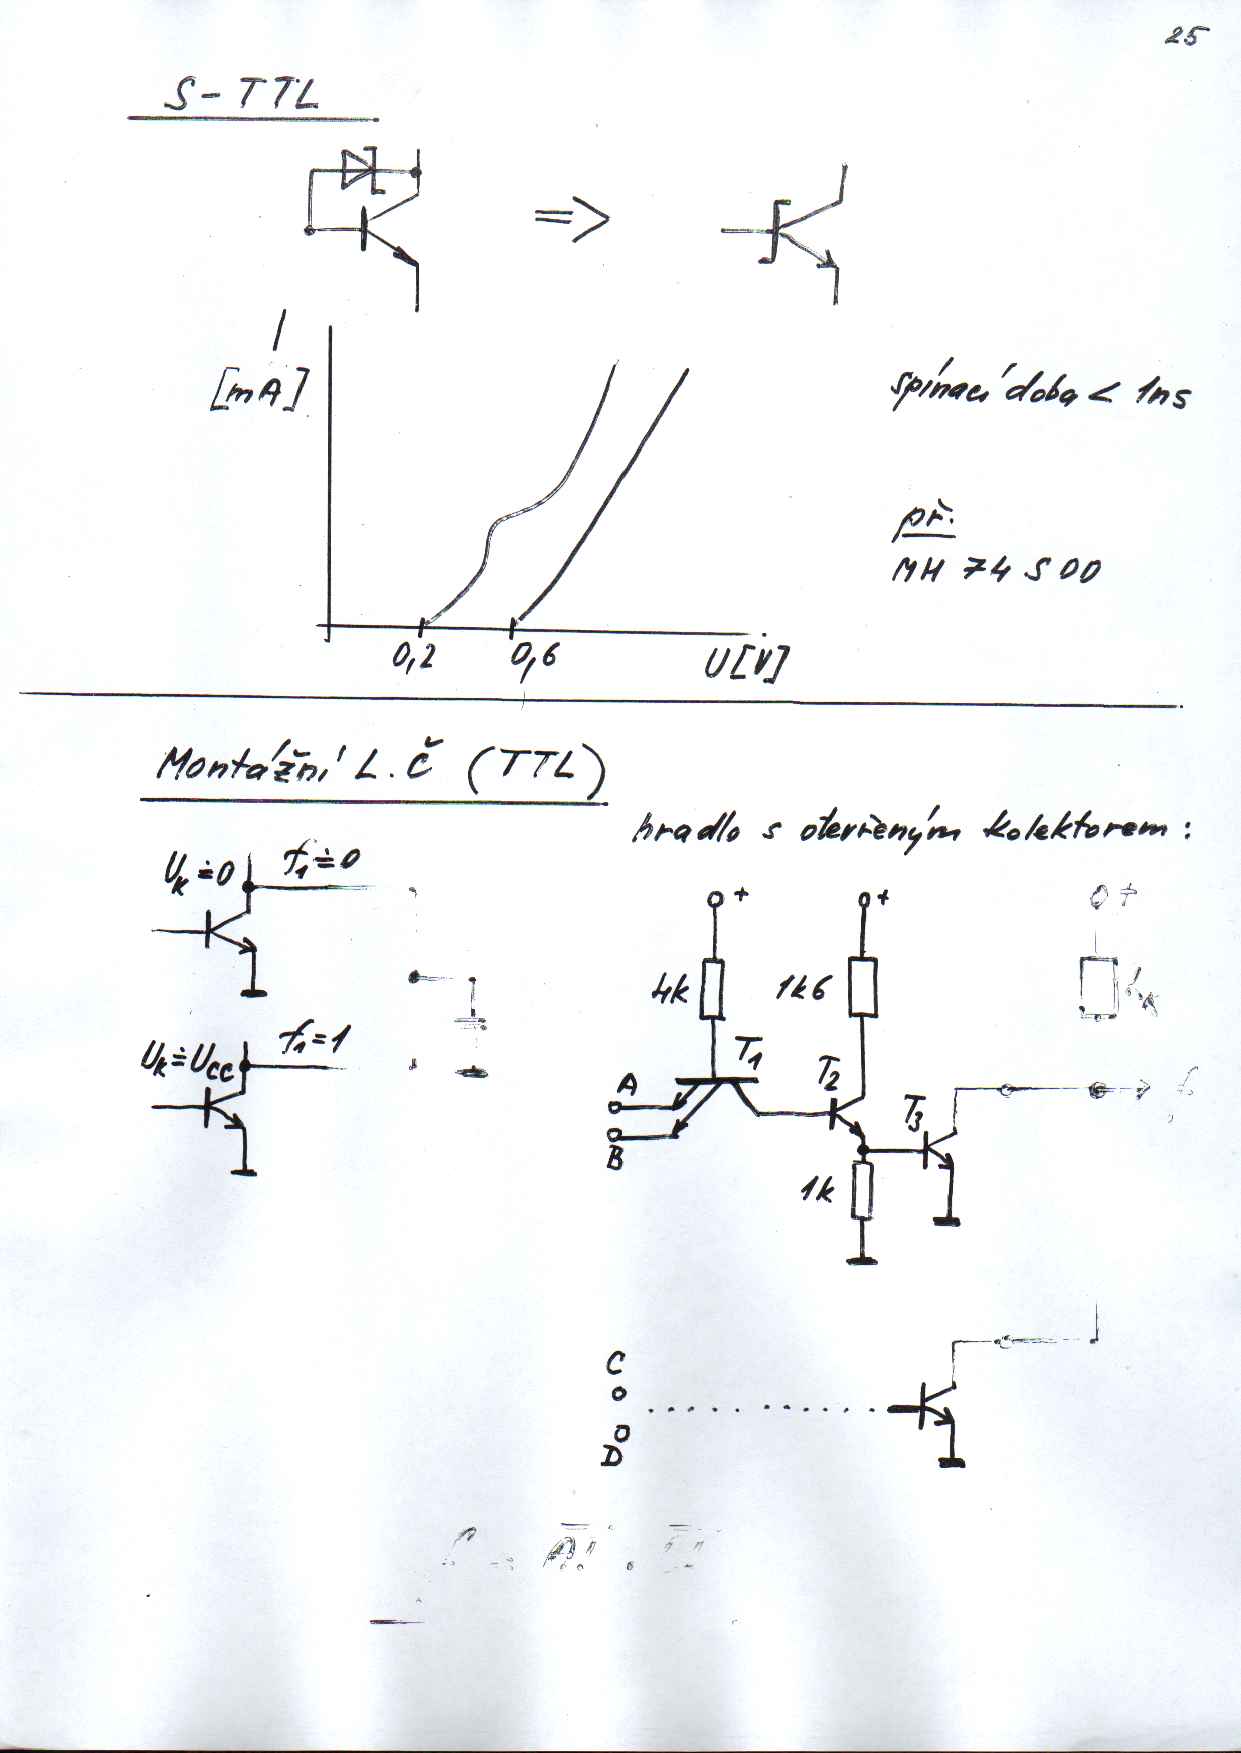 25
S-TTL
I
[mA]
spínací doba < 1ns
př.
MH 74 S 00
0,2
0,6
U[V]
Montážní L.Č (TTL)
hradlo s otevřeným kolektorem:
U_K ≐ 0
f_1 ≐ 0
+
+
+
4k
1k6
U_K ≐ U_CC
f_1 = 1
T_1
A
T_2
T_3
f
B
1k
C
D